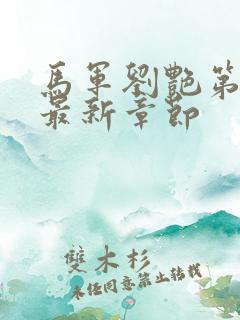 馬軍劉艷第
最新章節
雙木杉
未經同意禁止轉載